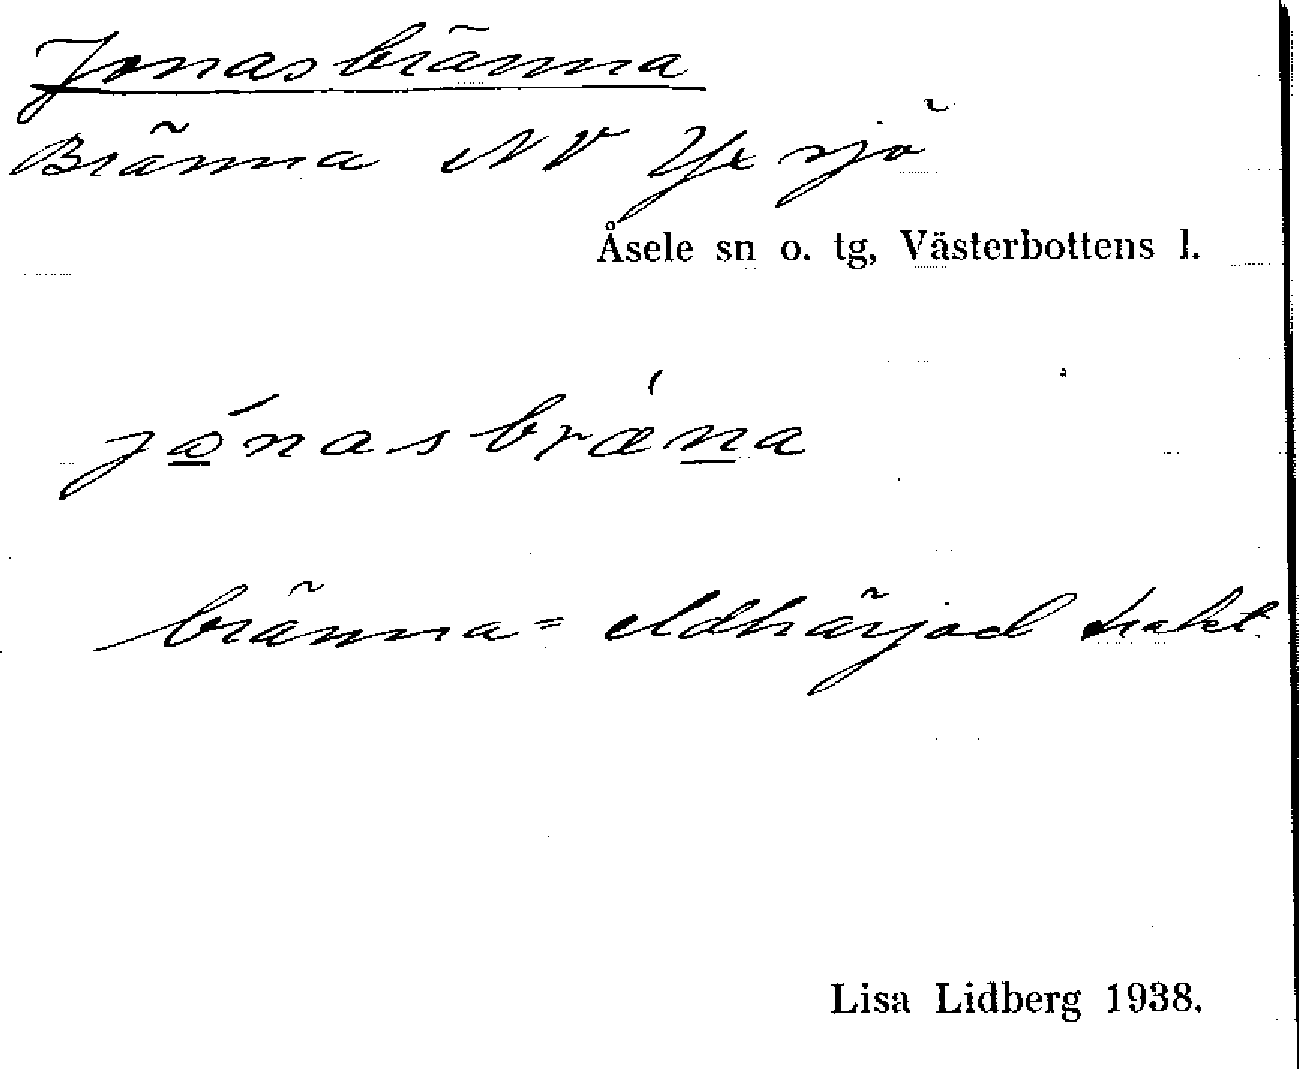 Jonasbränna
Bränna NV Yxsjö
Åsele sn o. tg, Västerbottens l.
jó̲nasbrǽn̲a
bränna = eldhärjad trakt.
Lisa Lidberg 1938.